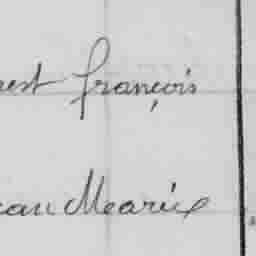 est françois
ean Marie